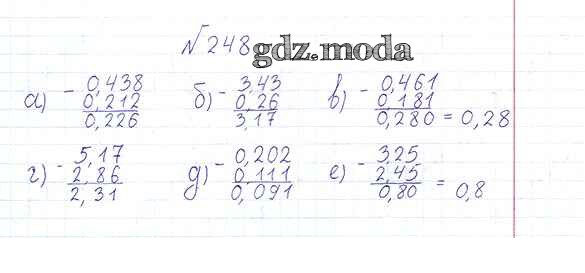 №248 gdz.moda
а) - 0,438 б) - 3,43 в) - 0,461
0,212 0,26 0,181
0,226 3,17 0,280 = 0,28
г) - 5,17 д) - 0,202 е) - 3,25
2,86 0,111 2,45
2,31 0,091 0,80 = 0,8